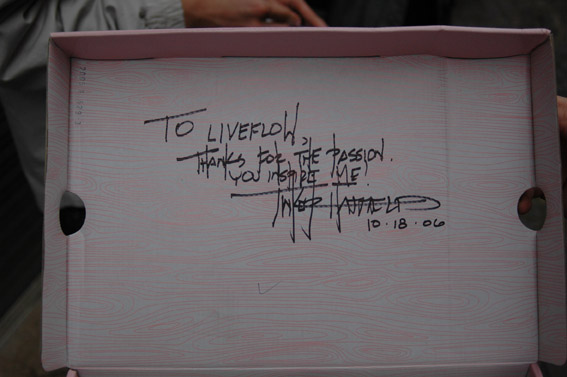 TO LIVEFLOW,
THANKS FOR THE PASSION.
YOU INSPIRE ME.
TINKER HATFIELD
10.18.06